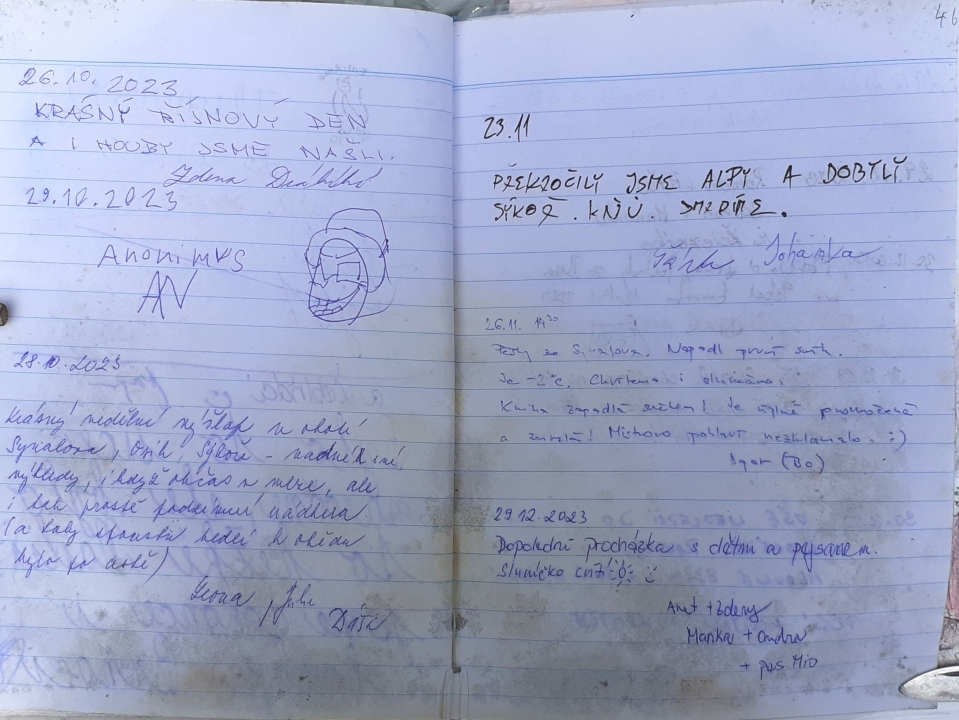 26.10. 2023
KRÁSNÝ ŘÍJNOVÝ DEN
A I HOUBY JSME NAŠLI.
Zdena
29.10.2023
Anonimus
AN
28.10.2023
Krásný nedělní výšlap v okolí
Synalova, Osik, Sýkoř – nádherné
výhledy, i když občas v mlze, ale
i tak prostě podzimní nádhera
(a kaby
bylo po
Ilona, Julie
Dáša
46
23.11
PŘEKROČILI JSME ALPY A DOBYLI
SÝKOŘ. KŇŮ.
Johanka
26.11. 14³⁰
Pěšky ze Synalova. Napadl první sníh.
Je -2°C. Chvílema i sluníčko.
Kniha zapadlá sněhem! Je úplně promočená
a zmrzlá! Místovo pohlaví nezklamalo. :)
Igor (Bo)
29.12.2023
Dopolední procházka s dětmi a pejskem.
Sluníčko
Anet + Zdeny
Marika + Ondra
+ pes Mio